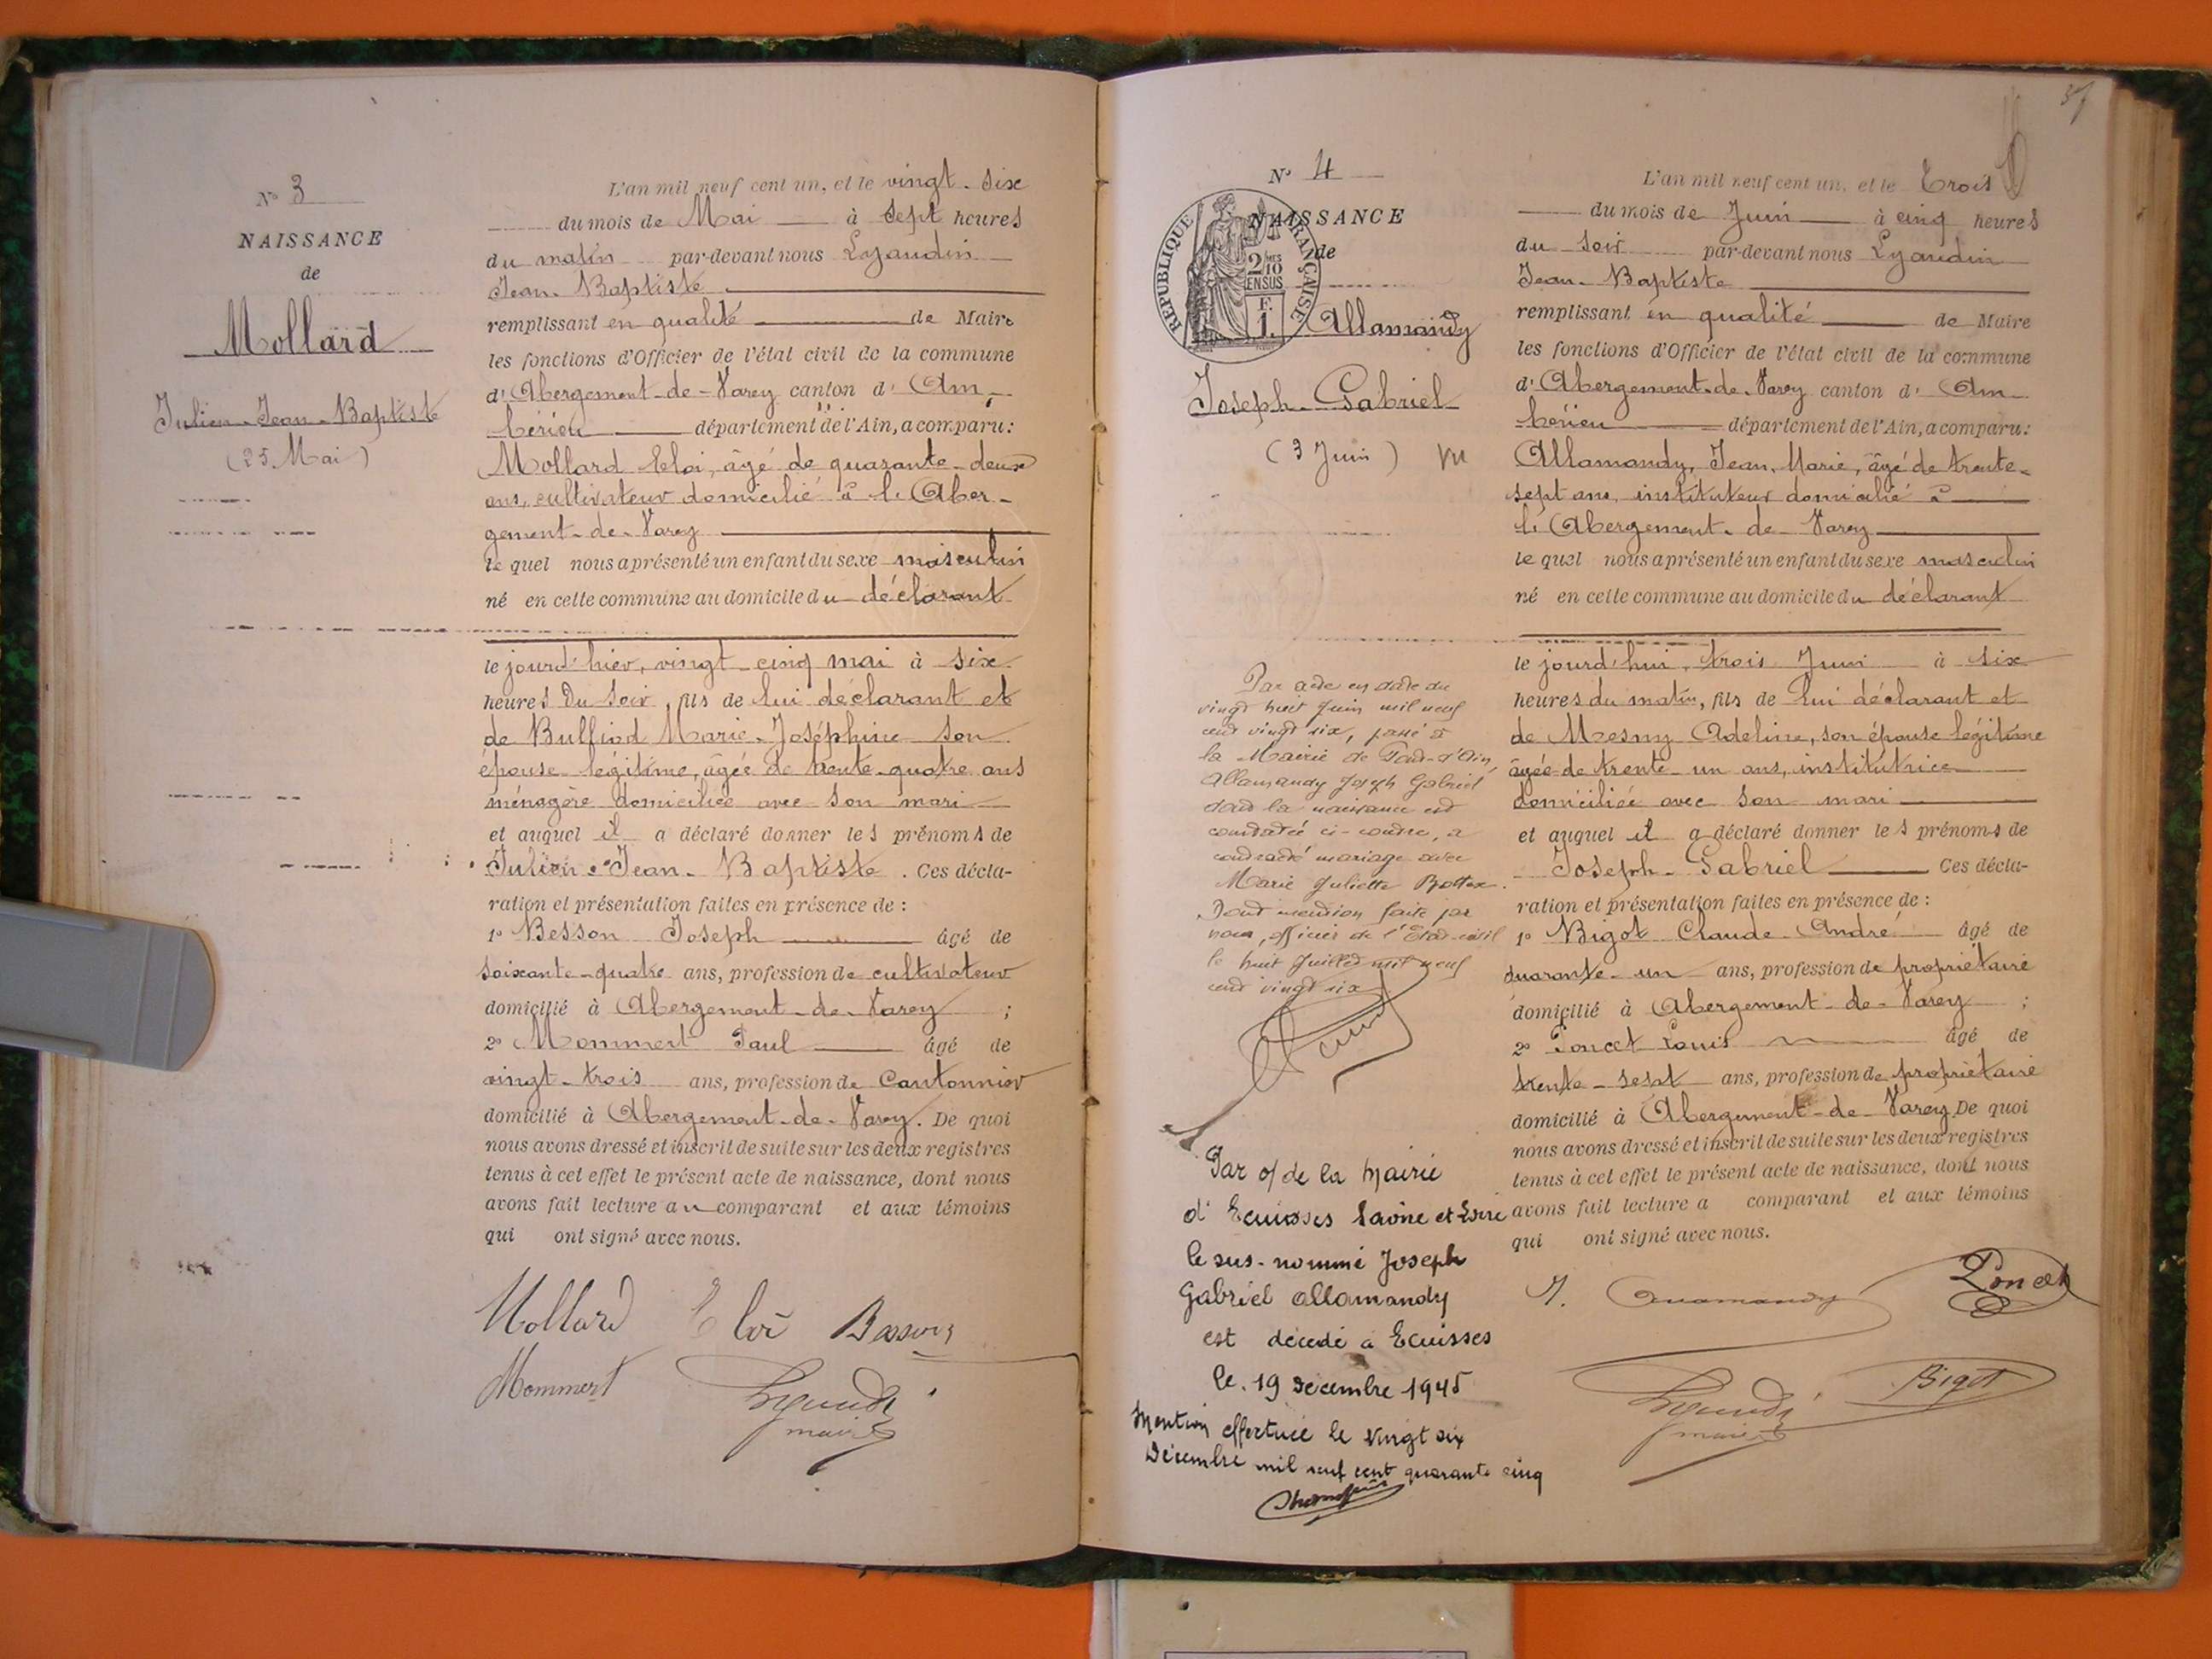 N° 3
NAISSANCE
de
Mollard
Julien-Jean-Baptiste
(25 Mai)
L'an mil neuf cent un, et le vingt-six
du mois de Mai à sept heures
du matin par-devant nous Lyaudin
Jean-Baptiste
remplissant en qualité de Maire
les fonctions d'Officier de l'état civil de la commune
d'Abergement-de-Varey canton d'Am
bérieu département de l'Ain, a comparu:
Mollard Eloi, âgé de quarante-deux
ans, cultivateur domicilié à l'Aber-
gement-de-Varey
le quel nous a présenté un enfant du sexe masculin
né en cette commune au domicile du déclarant
le jour d'hier, vingt-cinq mai à six
heures du soir, fils de lui déclarant et
de Bulliod Marie-Joséphine son
épouse légitime, âgée de trente-quatre ans
ménagère domiciliée avec son mari
et auquel il a déclaré donner les prénoms de
Julien-Jean-Baptiste. Ces décla-
ration et présentation faites en présence de :
1° Besson Joseph âgé de
soixante-quatre ans, profession de cultivateur
domicilié à Abergement-de-Varey ;
2° Mommert Paul âgé de
vingt-trois ans, profession de Cantonnier
domicilié à Abergement-de-Varey. De quoi
nous avons dressé et inscrit de suite sur les deux registres
tenus à cet effet le présent acte de naissance, dont nous
avons fait lecture au comparant et aux témoins
qui ont signé avec nous.
Mollard Eloi Besson
Mommert
maire
37
N° 4
NAISSANCE
de
RÉPUBLIQUE FRANÇAISE
2/10
EN SUS
F.
1.
Allamandy
Joseph-Gabriel
(3 Juin)
Par acte en date du
vingt huit Juin mil neuf
cent vingt six, passé à
la Mairie de Pont-d'Ain,
Allamandy Joseph Gabriel
dont la naissance est
constatée ci-contre, a
contracté mariage avec
Marie Juliette Bottex.
Dont mention faite par
nous, officier de l'Etat-civil
le huit Juillet mil neuf
cent vingt six
Par o/ de la Mairie
d'Ecuisses Saône et Loire
le sus-nommé Joseph
Gabriel Allamandy
est décédé à Ecuisses
le 19 décembre 1945
Mention effectuée le vingt six
Décembre mil neuf cent quarante cinq
L'an mil neuf cent un, et le Trois
du mois de Juin à cinq heures
du soir par-devant nous Lyaudin
Jean-Baptiste
remplissant en qualité de Maire
les fonctions d'Officier de l'état civil de la commune
d'Abergement-de-Varey canton d'Am
bérieu département de l'Ain, a comparu:
Allamandy, Jean, Marie, âgé de trente-
sept ans, instituteur domicilié à
l'Abergement-de-Varey
le quel nous a présenté un enfant du sexe masculin
né en cette commune au domicile du déclarant
le jour d'hui, trois Juin à six
heures du matin, fils de lui déclarant et
de Mesmy Adeline, son épouse légitime
âgée de trente-un ans, institutrice
domiciliée avec son mari
et auquel il a déclaré donner les prénoms de
Joseph-Gabriel Ces décla-
ration et présentation faites en présence de :
1° Bigot Claude André âgé de
quarante-un ans, profession de propriétaire
domicilié à Abergement-de-Varey ;
2° Poncet Louis âgé de
trente-sept ans, profession de propriétaire
domicilié à Abergement-de-Varey De quoi
nous avons dressé et inscrit de suite sur les deux registres
tenus à cet effet le présent acte de naissance, dont nous
avons fait lecture a comparant et aux témoins
qui ont signé avec nous.
J. Allamandy Poncet
Bigot
maire